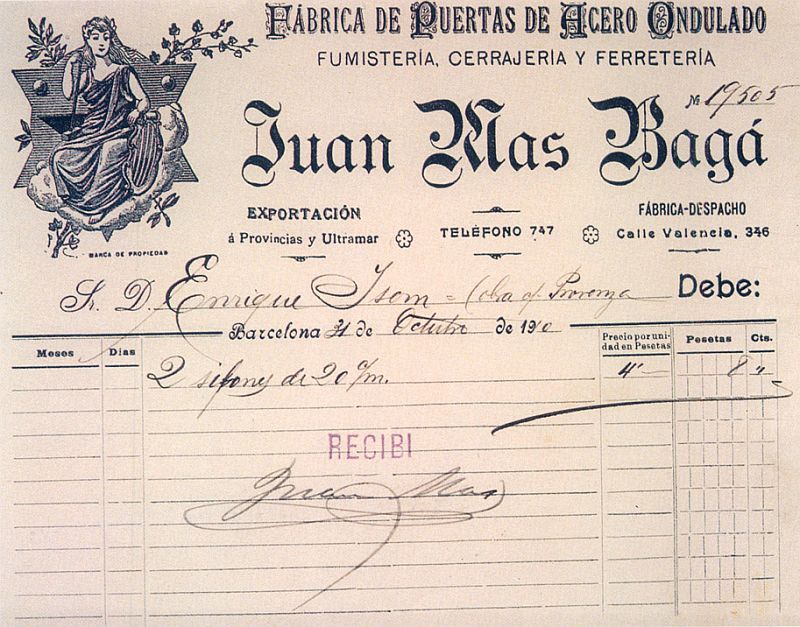 FÁBRICA DE PUERTAS DE ACERO ONDULADO
FUMISTERÍA, CERRAJERÍA Y FERRETERÍA
№ 19505
Juan Mas Bagá
EXPORTACIÓN
á Provincias y Ultramar
TELÉFONO 747
FÁBRICA-DESPACHO
Calle Valencia, 346
MARCA DE PROPIEDAD
Sr. D. Enrique Isern = Provenza Debe:
Barcelona 31 de Octubre de 1910
Meses Días Precio por unidad en Pesetas Pesetas Cts.
2 sifones de 20 c/m. 4'— 8 "
RECIBI
Juan Mas